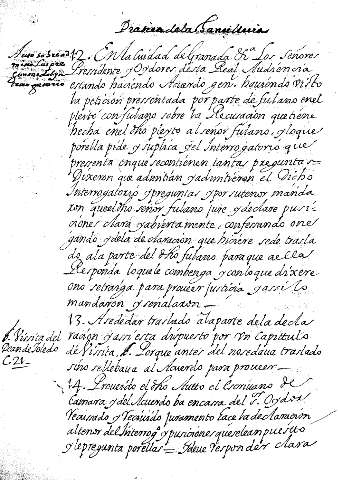 Pratica de la Chancilleria
Auto sobre ad
mision de las pre
guntas de la
12. En la ciudad de Granada & Los Señores
Presidente y Oydores desta Real Audiencia
estando haciendo Acuerdo gen. haviendo visto
la peticion pressentada por parte de fulano en el
pleyto con fulano sobre la Recusacion que tiene
hecha en el dho pleyto al señor fulano, y lo que
por ella pide y suplica y el Interrogatorio que
presenta en que se contienen tantas preguntas =
Dixeron que admitian y admitieron el Dicho
Interrogatorio y preguntas y por su tenor manda
ron que el dho señor fulano jure y declare pusi
ciones clara y abiertamente, confesando o ne
gando y de la declaracion que hiciere se de trasla
do a la parte del dho fulano para que a ella
Responda lo que le combenga y con lo que dixere
o no se traiga para proveer justicia y assi lo
mandaron y señalaron —
Vissita del
Dean de Toledo
C. 21 -
13. A se de dar traslado a la parte de la decla
racion y assi esta dispuesto por Un Capitulo
de Vissita, Porque antes del no se dava traslado
sino se llebava al Acuerdo para proveer —
14. Proveido el dho Autto el Escrivano de
Camara, y del Acuerdo ba en casa del S. Oydor
recusado y recivido juramento hace la declaracion
al tenor del Interrog.º y pusiciones que le an puesto
y le pregunta por ellas = y deve responder clara